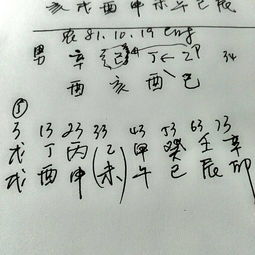 亥 戌 酉 申 未 午 巳 辰
81.10.19
男 辛 己 丁 乙 34
酉 亥 酉 巳
3 13 23 33 43 53 63 73
戊 丁 丙 (乙 甲 癸 壬 辛
戌 酉 申 未) 午 巳 辰 卯